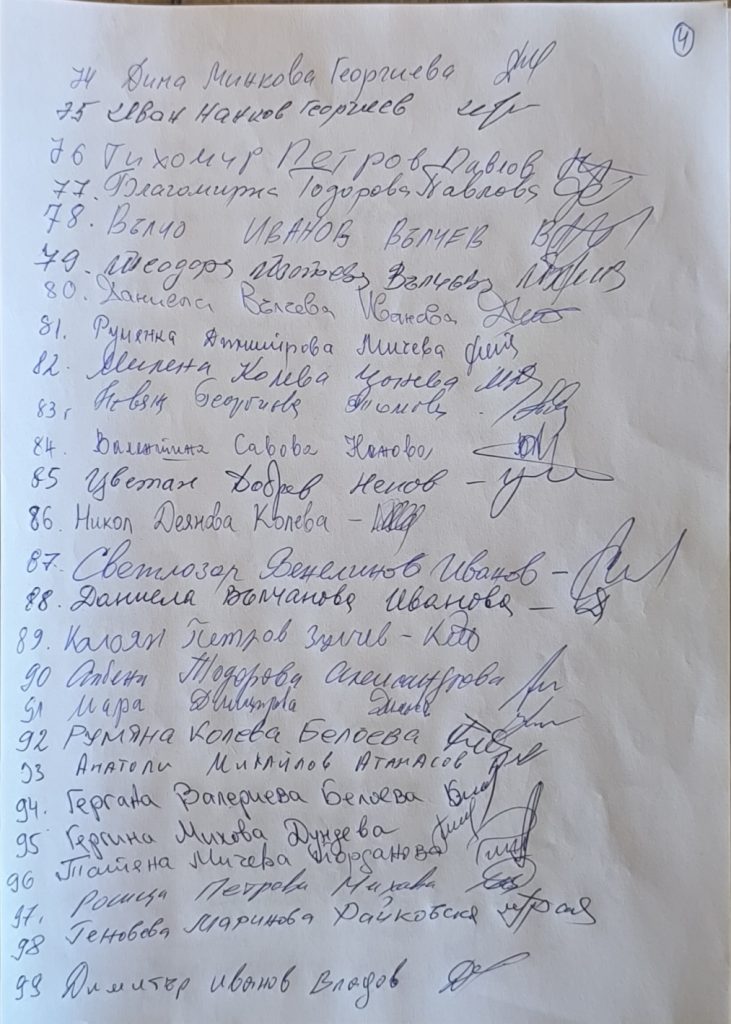 4
74 Дина Минкова Георгиева
75 Иван Нанков Георгиев
76 Тихомир Петров Павлов
77. Благомирка Тодорова Павлова
78. Вълчо ИВАНОВ ВЪЛЧЕВ
79. Теодора Вълчева
80. Даниела Вълчева Иванова
81. Румянка Димитрова Мичева
82. Милена Колева Цонева
83. Георгиева
84. Валентина Савова Нанова
85 Цветан Добрев Ненов –
86. Никол Деянова Колева –
87. Светлозар Венелинов Иванов –
88. Даниела Вълчанова Иванова –
89. Калоян Петров Зулчев –
90 Албена Тодорова Александрова
91 Мара Димитрова
92 Румяна Колева Белоева
93 Анатоли Михайлов Атанасов
94. Гергана Валериева Белоева
95 Гергина Михова Дундева
96 Татяна Мичева Йорданова
97. Росица Петрова Михова
98 Геновева Маринова Райковска
99 Димитър Иванов Владов